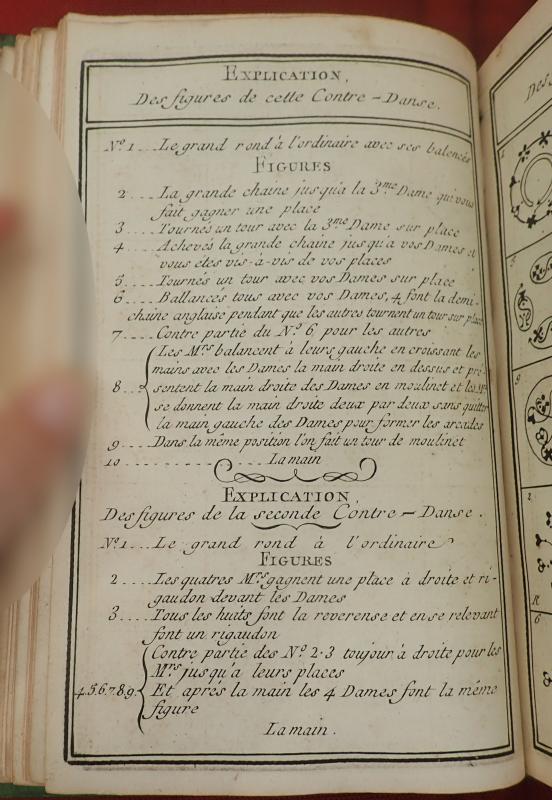 EXPLICATION,
Des figures de cette Contre-Danse.
N.º 1... Le grand rond à l'ordinaire avec ses balencés
FIGURES
2.... La grande chaine jusqu'a la 3.me Dame qui vous
fait gagner une place
3.... Tournés un tour avec la 3.me Dame sur place
4.... Achevés la grande chaine jusqu'a vos Dames et
vous étes vis-à-vis de vos places
5.... Tournés un tour avec vos Dames sur place
6.... Ballancés tous avec vos Dames, 4 font la demi-
chaine anglaise pendant que les autres tournent un tour sur place
7.... Contre partie du N.º 6 pour les autres
Les M.rs balancent à leurs gauche en croissant les
mains avec les Dames la main droite en dessus et pré-
8... sentent la main droite des Dames en moulinet et les M.rs
se donnent la main droite deux par deux sans quitter
la main gauche des Dames pour former les arcades
9.... Dans la même position l'on fait un tour de moulinet
10................ La main
EXPLICATION,
Des figures de la seconde Contre-Danse.
N.º 1... Le grand rond à l'ordinaire
FIGURES
2.... Les quatres M.rs gagnent une place à droite et ri-
gaudon devant les Dames
3.... Tous les huits font la reverense et en se relevant
font un rigaudon
Contre partie des N.º 2.3 toujour à droite pour les
M.rs jusqu'a leurs places
4.5.6.7.8.9. Et après la main les 4 Dames font la même
figure
La main.
Des
1
5
9
2
R
6